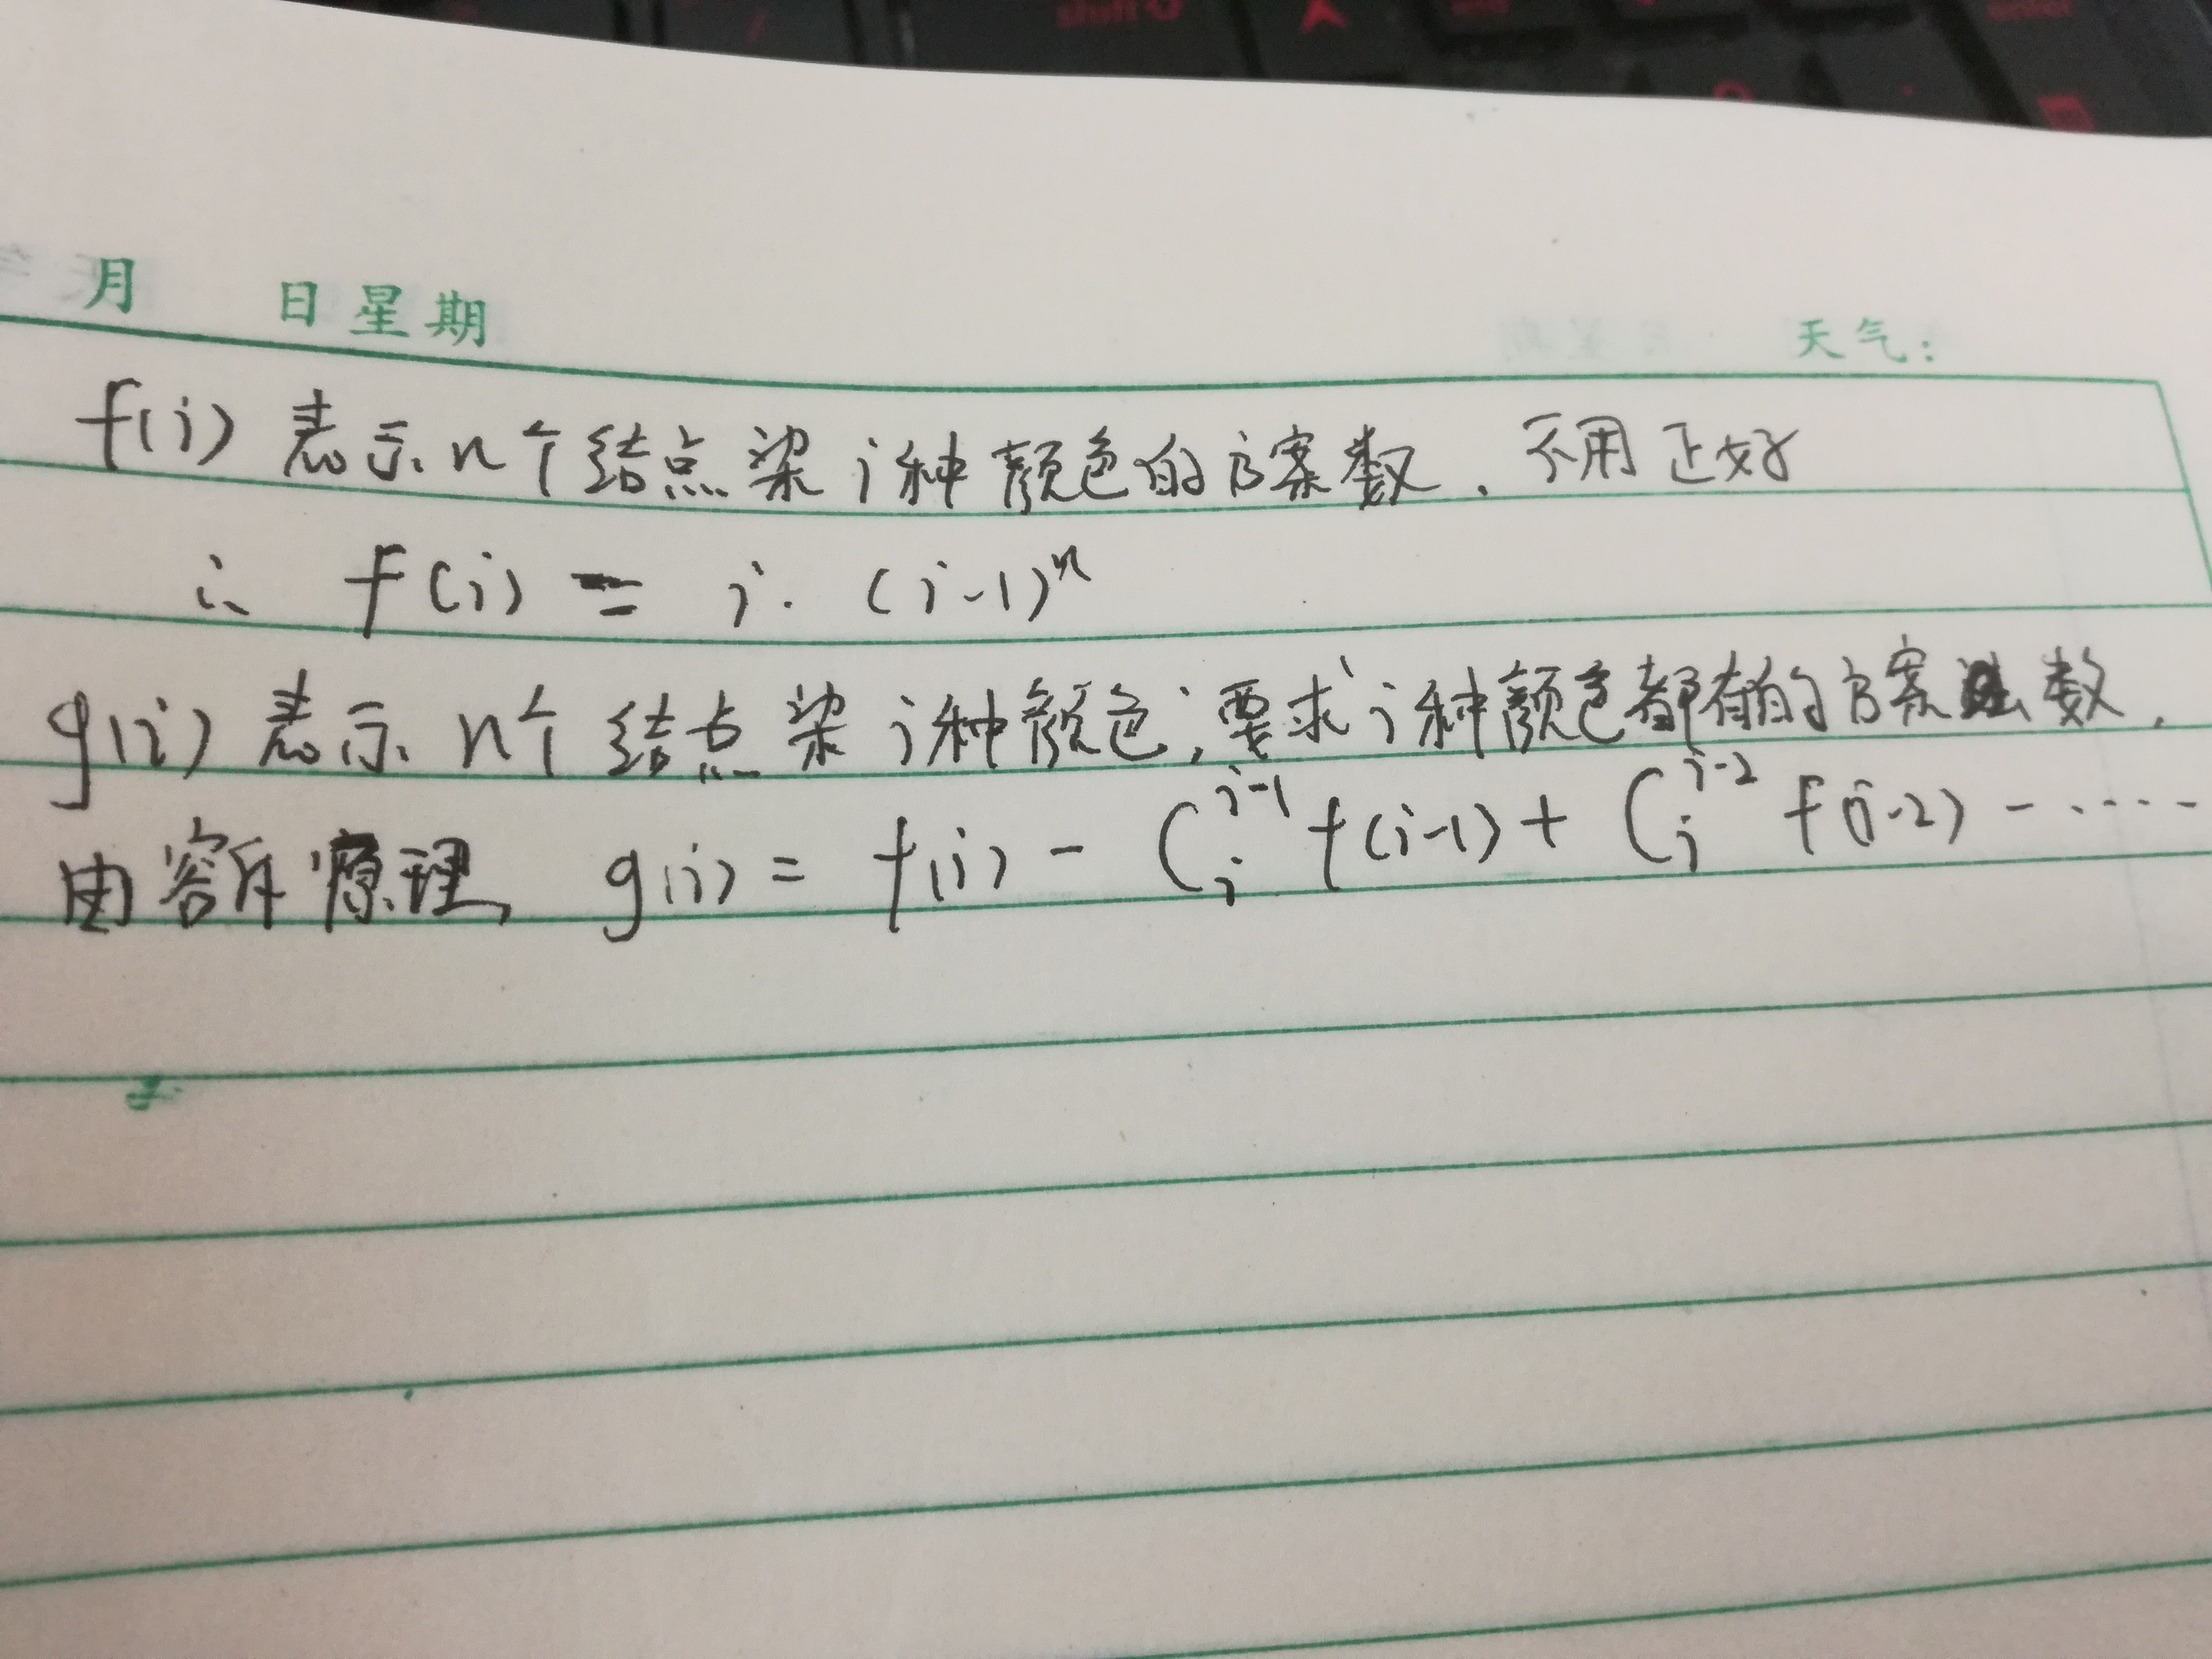 shift
enter
月 日 星期 天气：
f(i) 表示 n个结点染 i种颜色的方案数. 不用正好
∴ f(i) = i · (i-1)^n
g(i) 表示 n个结点染 i种颜色, 要求 i种颜色都有的方案数.
由容斥原理, g(i) = f(i) - C_i^{i-1} f(i-1) + C_i^{i-2} f(i-2) - ·····